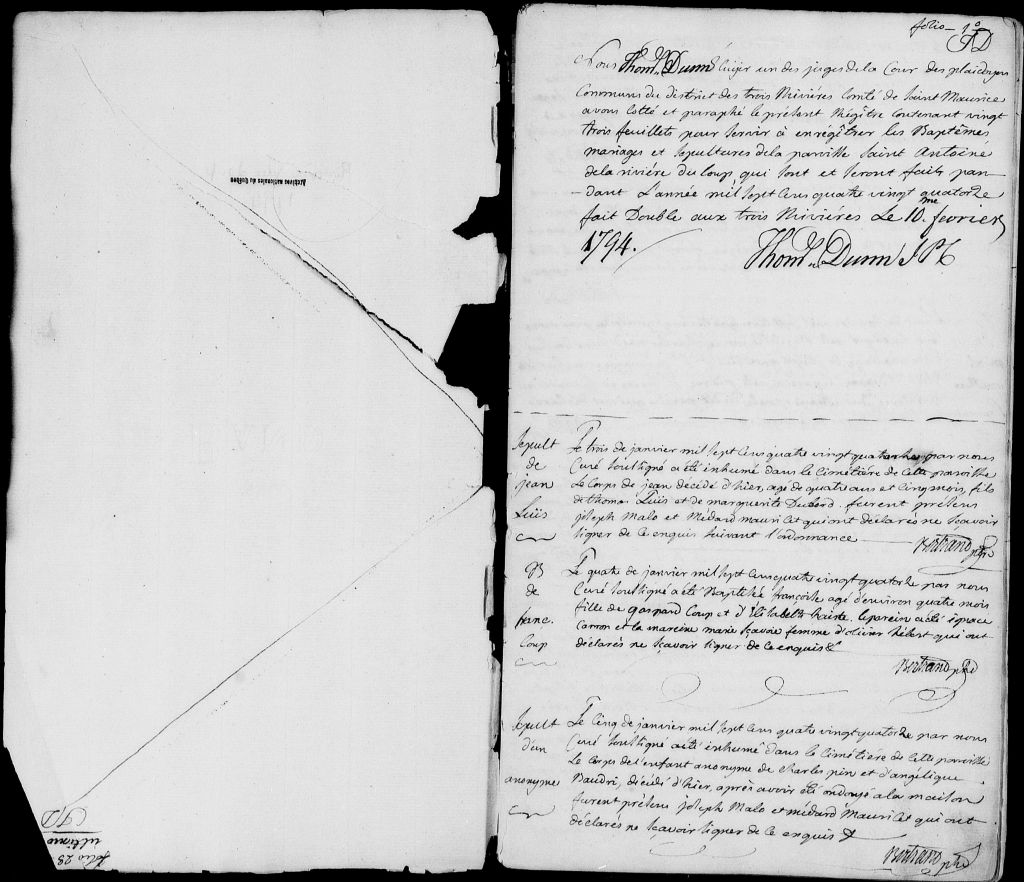 Archives nationales du Québec
folio 28
ultimo
TD
folio - 1o
TD
Nous Thoms Dunn Ecuyer un des juges de la Cour des plaidoyers
Communs du district des trois Rivières Comté de Saint Maurice
avons cotté et paraphé le présent Régitre contenant vingt
trois feuillets pour servir à enrégitrer les Baptêmes
mariages et sepultures de la paroisse saint Antoine
de la rivière du loup qui sont et seront faits pan
-dant L'année mil sept cens quatre vingt quatorze
fait Double aux trois Rivières Le 10.me fevrier
1794.
Thoms Dunn J P C
Sepult
de
jean
Luis
Le trois de janvier mil sept cens quatre vingt quatorze par nous
Curé soussigné a été inhumé dans le Cimétiére de Cette paroisse
Le Corps de jean décédé d'hier, agé de quatre ans et Cinq mois, fils
de thomas Luis et de marguerite Duclord. furent présens
joseph Malo et Médard mauricet qui ont déclarés ne sçavoir
signer de ce enquis suivant l'ordonnance
Bertrand ptre
B
de
franc.
Coup
Le quatre de janvier mil sept cens quatre vingt quatorze par nous
Curé soussigné a été Baptisée françoise agé d'environ quatre mois
fille de Gaspard Coup et d'Elisabeth. Le parein a été ignace
Carron et la mareine marie sçavoie femme d'olivier hébert qui ont
déclarés ne sçavoir signer de ce enquis &
Bertrand ptre
Sepult
d'un
anonyme
Le Cinq de janvier mil sept cens quatre vingt quatorze par nous
Curé soussigné a été inhumé dans le Cimétiére de Cette paroisse
Le Corps de l'enfant anonyme de Charles pin et d'angélique
Baudri, décédé d'hier, après avoir été ondoyé a la maison
furent présens joseph Malo et médard Mauricet qui ont
déclarés ne sçavoir signer de ce enquis &
Bertrand ptre